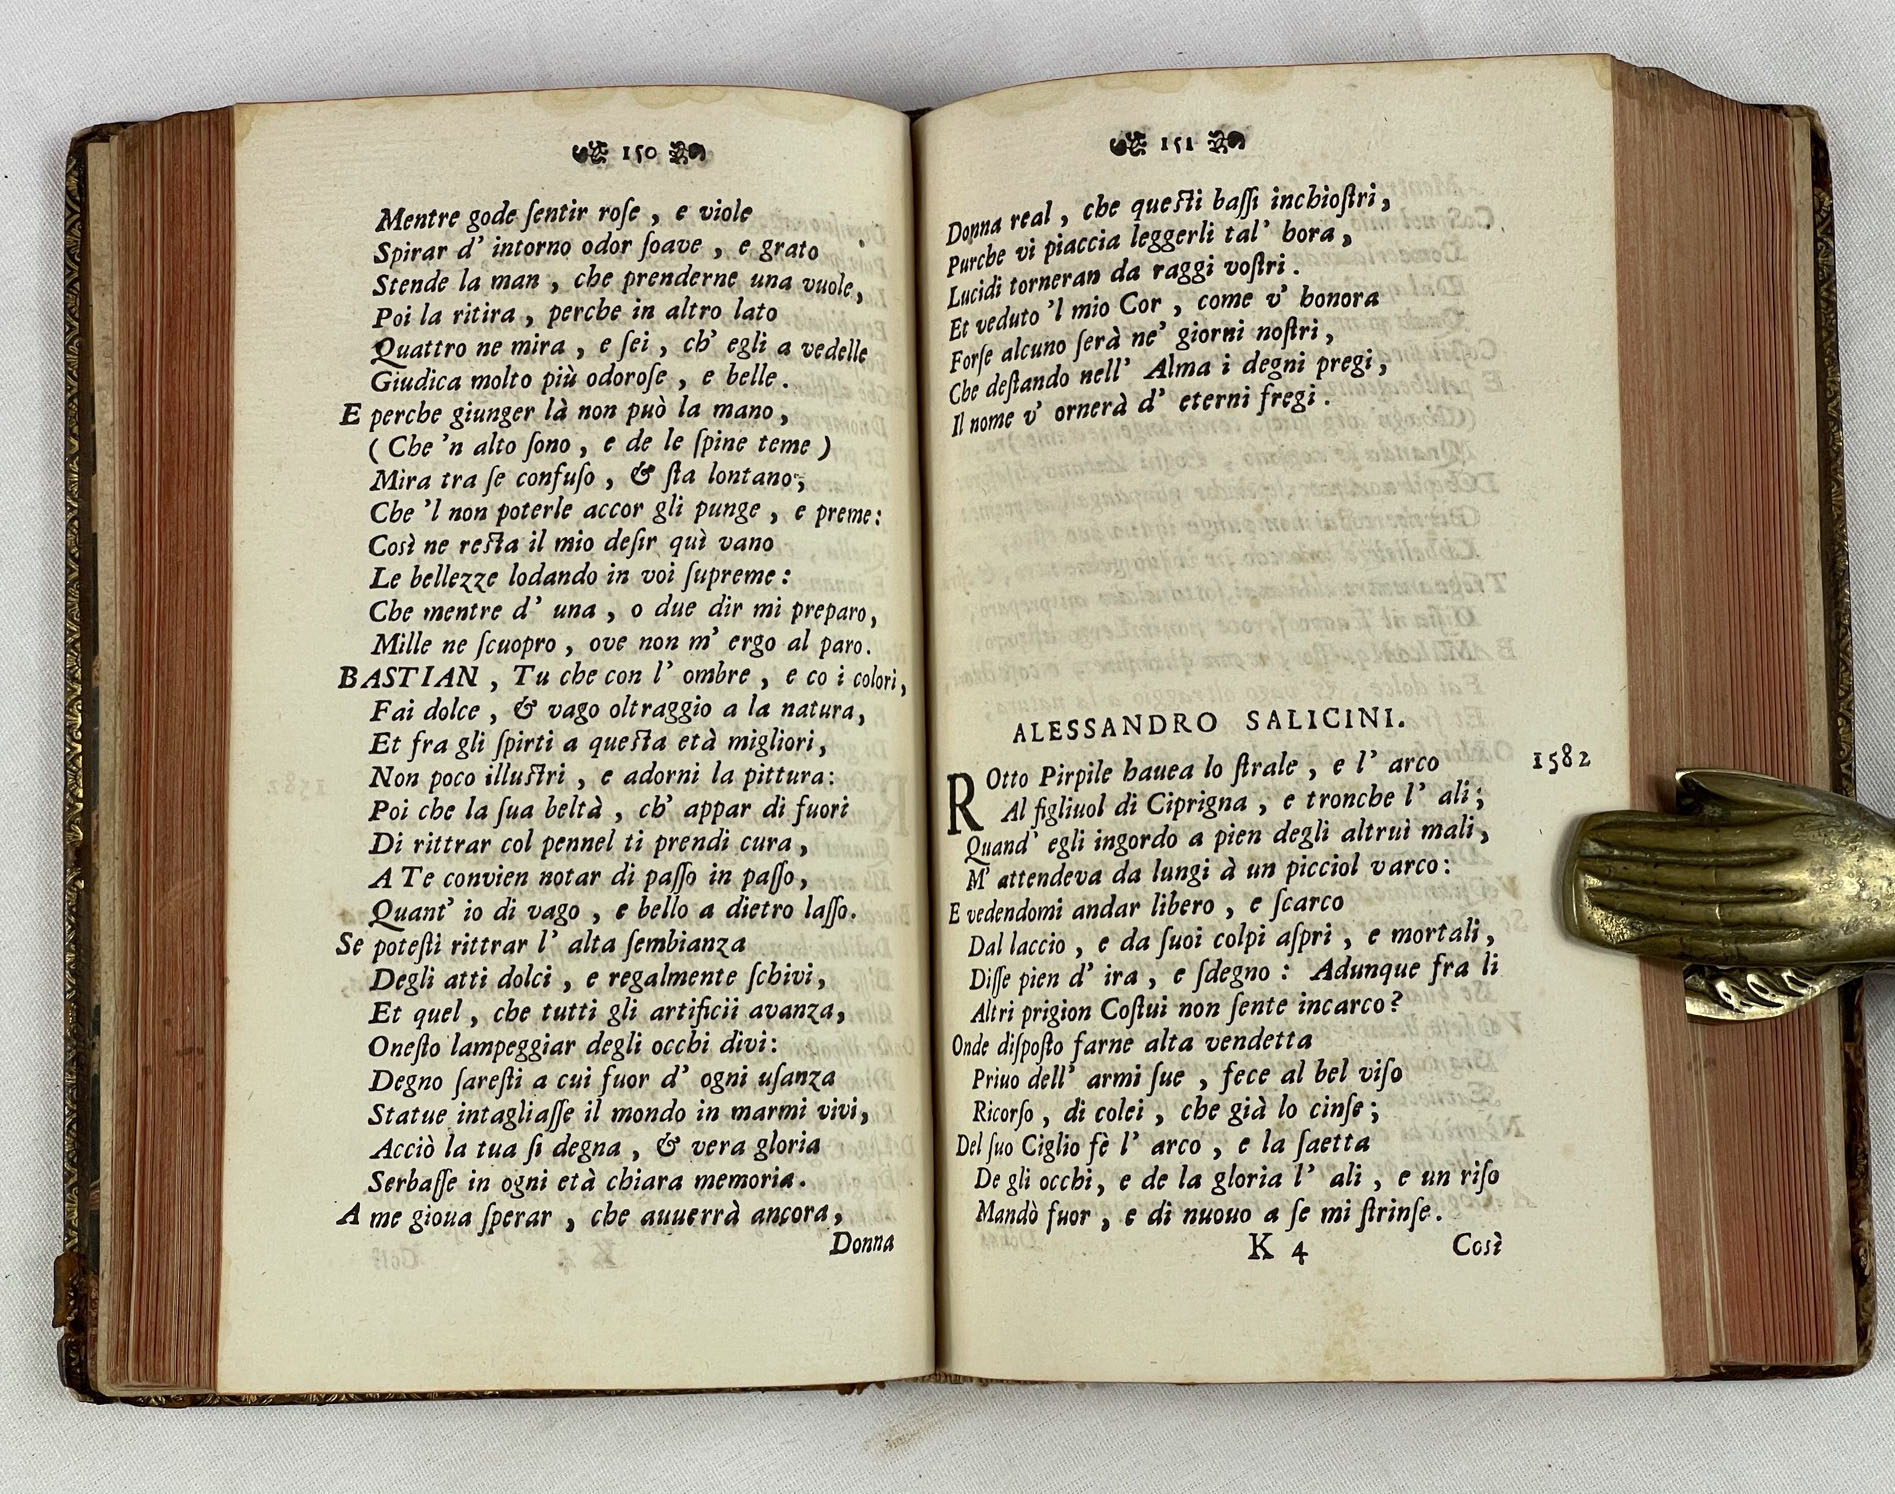 150
Mentre gode ſentir roſe , e viole
Spirar d' intorno odor ſoave , e grato
Stende la man , che prenderne una vuole,
Poi la ritira , perche in altro lato
Quattro ne mira , e ſei , ch' egli a vedelle
Giudica molto più odoroſe , e belle .
E perche giunger là non può la mano ,
( Che 'n alto ſono , e de le ſpine teme )
Mira tra ſe confuſo , & ſta lontano ,
Che 'l non poterle accor gli punge , e preme :
Così ne reſta il mio deſir quì vano
Le bellezze lodando in voi ſupreme :
Che mentre d' una , o due dir mi preparo ,
Mille ne ſcuopro , ove non m' ergo al paro .
BASTIAN , Tu che con l' ombre , e co i colori ,
Fai dolce , & vago oltraggio a la natura ,
Et fra gli ſpirti a queſta età migliori ,
Non poco illuſtri , e adorni la pittura :
Poi che la ſua beltà , ch' appar di fuori
Di rittrar col pennel ti prendi cura ,
A Te convien notar di paſſo in paſſo ,
Quant' io di vago , e bello a dietro laſſo .
Se poteſti rittrar l' alta ſembianza
Degli atti dolci , e regalmente ſchivi ,
Et quel , che tutti gli artificii avanza ,
Oneſto lampeggiar degli occhi divi :
Degno ſareſti a cui fuor d' ogni uſanza
Statue intagliaſſe il mondo in marmi vivi ,
Acciò la tua ſi degna , & vera gloria
Serbaſſe in ogni età chiara memoria .
A me gioua ſperar , che auuerrà ancora ,
Donna
151
Donna real , che queſti baſſi inchioſtri ,
Purche vi piaccia leggerli tal' hora ,
Lucidi torneran da raggi voſtri .
Et veduto 'l mio Cor , come v' honora
Forſe alcuno ſerà ne' giorni noſtri ,
Che deſtando nell' Alma i degni pregi ,
Il nome v' ornerà d' eterni fregi .
ALESSANDRO SALICINI.
ROtto Pirpile hauea lo ſtrale , e l' arco 1582
Al figliuol di Ciprigna , e tronche l' ali ;
Quand' egli ingordo a pien degli altrui mali ,
M' attendeva da lungi à un picciol varco :
E vedendomi andar libero , e ſcarco
Dal laccio , e da ſuoi colpi aſpri , e mortali ,
Diſſe pien d' ira , e ſdegno : Adunque fra li
Altri prigion Coſtui non ſente incarco ?
Onde diſpoſto farne alta vendetta
Priuo dell' armi ſue , fece al bel viſo
Ricorſo , di colei , che già lo cinſe ;
Del ſuo Ciglio fè l' arco , e la ſaetta
De gli occhi , e de la gloria l' ali , e un riſo
Mandò fuor , e di nuouo a ſe mi ſtrinſe .
K 4 Così